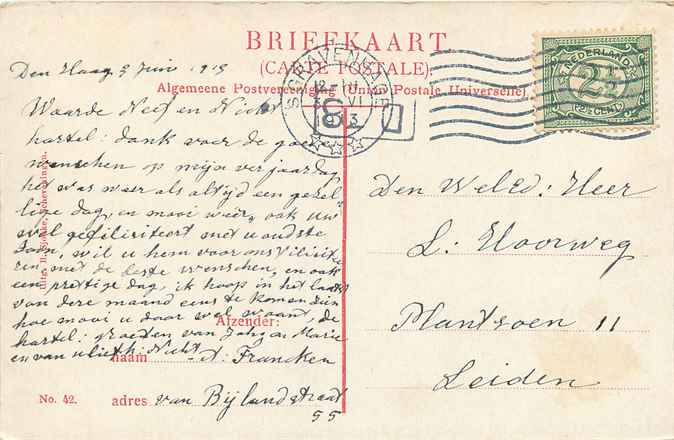 BRIEFKAART
(CARTE POSTALE).
Algemeene Postvereeniging (Union Postale Universelle).
'S-GRAVENHAGE
NEDERLAND
2½
(2½ CENT)
Den Haag 3 Juni 1913
Waarde Neef en Nicht
hartel: dank voor de goede
wenschen op mijn verjaardag
het was weer als altijd een gezel-
lige dag, en mooi weer, ook uw
wel gefiliciteert met u oudste
Zoon, wil u hem voor ons
met de beste wenschen, en ook
een prettige dag, ik hoop in het laatst
van deze maand eens te komen zien
hoe mooi u daar wel woont, de
hartel: groeten van en Marie
en van u liefh Nicht
naam A: Francken
Afzender:
No. 42.
adres van Bijlandstraat
55
Den WelEd: Heer
L: Hoorweg
Plantsoen 11
Leiden